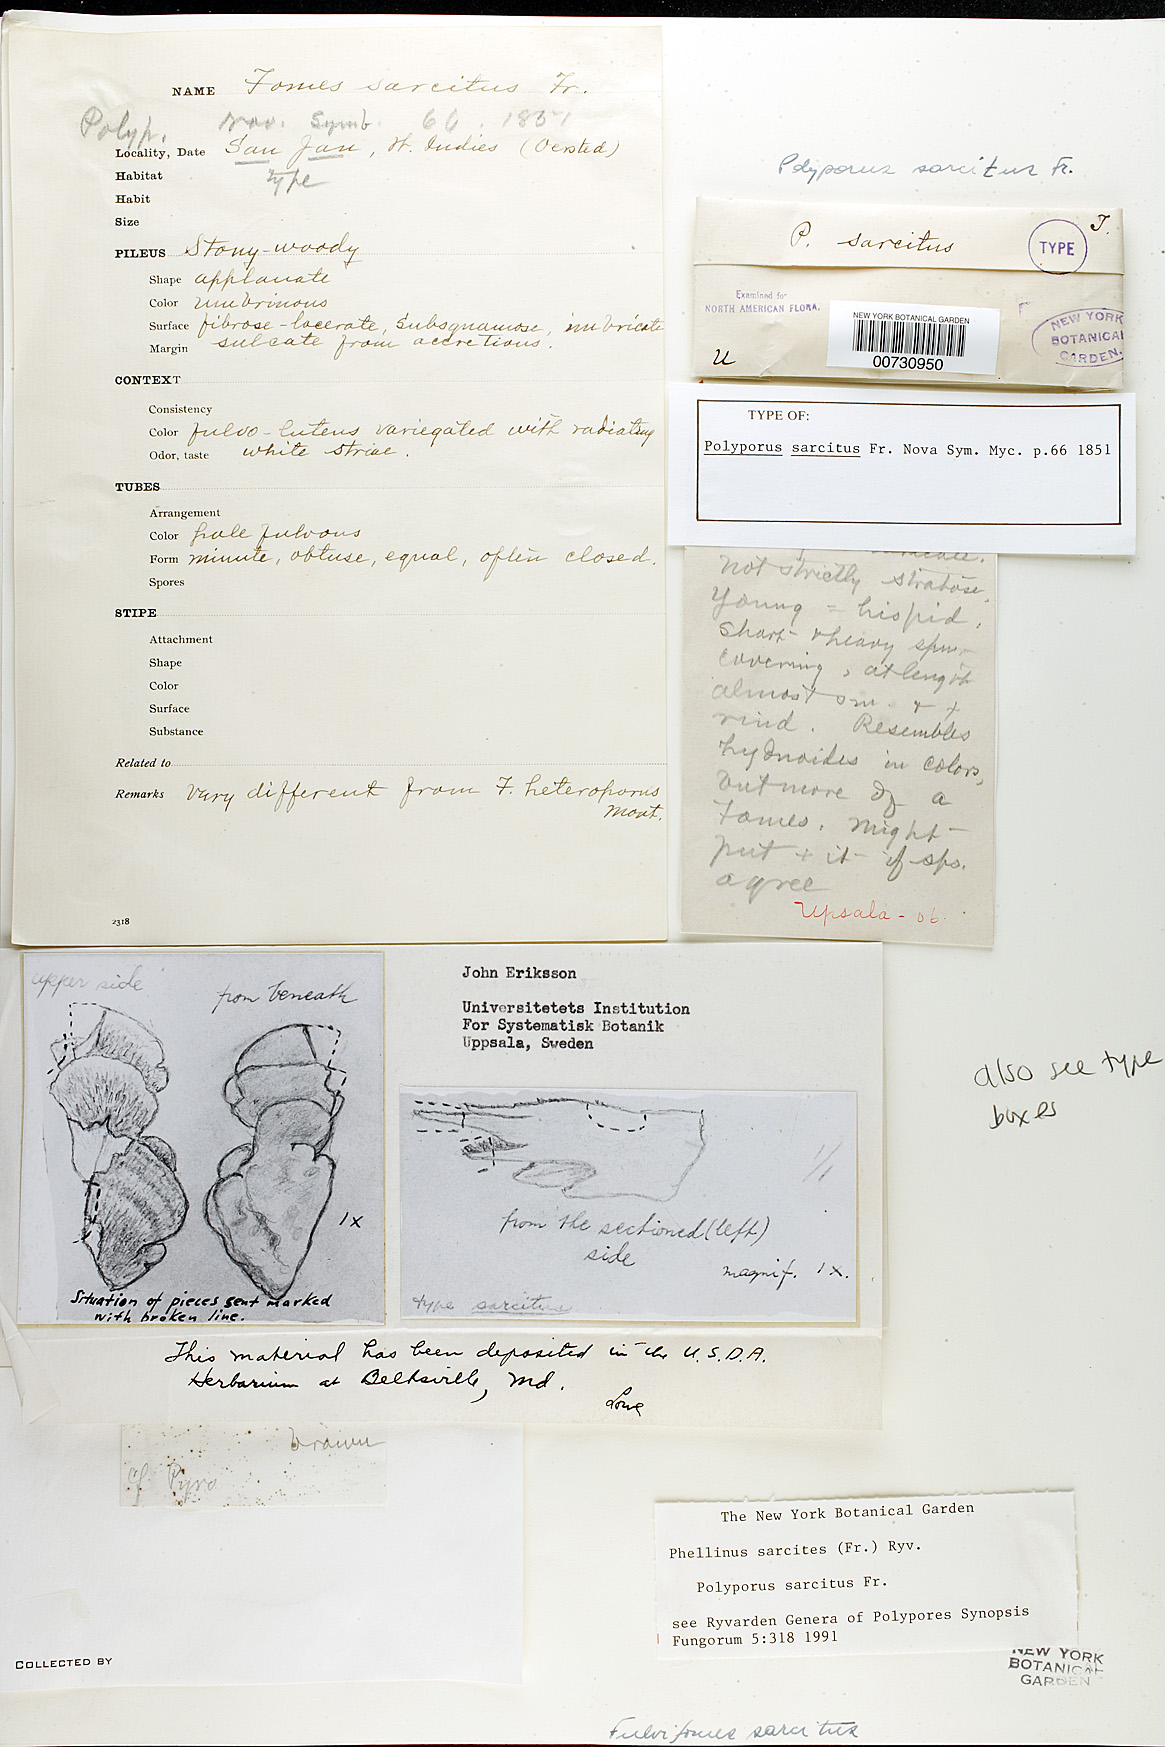 NAME Fomes sarcitus Fr.
Polyp. Nov. Symb. 66. 1851
Locality, Date San Jan, W. Indies (Oersted)
Habitat Type
Habit
Size
PILEUS Stony-woody
Shape applanate
Color umbrinous
Surface fibrose-lacerate, subsquamose, imbricate
Margin sulcate from accretions.
CONTEXT
Consistency
Color fulvo-luteus variegated with radiating
Odor, taste white striae.
TUBES
Arrangement
Color pale fulvous
Form minute, obtuse, equal, often closed.
Spores
STIPE
Attachment
Shape
Color
Surface
Substance
Related to
Remarks Very different from F. heteroporus
Mont.
2318
Polyporus sarcitus Fr.
P. sarcitus
TYPE
T.
Examined for
NORTH AMERICAN FLORA.
NEW YORK BOTANICAL GARDEN
00730950
NEW YORK
BOTANICAL
GARDEN.
U
TYPE OF:
Polyporus sarcitus Fr. Nova Sym. Myc. p.66 1851
not strictly stratose.
Young = hispid,
short & heavy
covering, at length
almost sm. & +
rind. Resembles
hydnoides in colors,
but more of a
Fomes. Might
put + it if sps.
agree
Upsala - 06.
upper side
from beneath
1x
Situation of pieces sent marked
with broken line.
John Eriksson
Universitetets Institution
For Systematisk Botanik
Uppsala, Sweden
1/1
from the sectioned (left)
side
magnif. 1x.
type sarcitus
also see type
boxes
This material has been deposited in the U.S.D.A.
Herbarium at Beltsville, Md.
Lowe
brown
cf Pyro
COLLECTED BY
The New York Botanical Garden
Phellinus sarcites (Fr.) Ryv.
Polyporus sarcitus Fr.
see Ryvarden Genera of Polypores Synopsis
Fungorum 5:318 1991
NEW YORK
BOTANICAL
GARDEN
Fulvifomes sarcitus